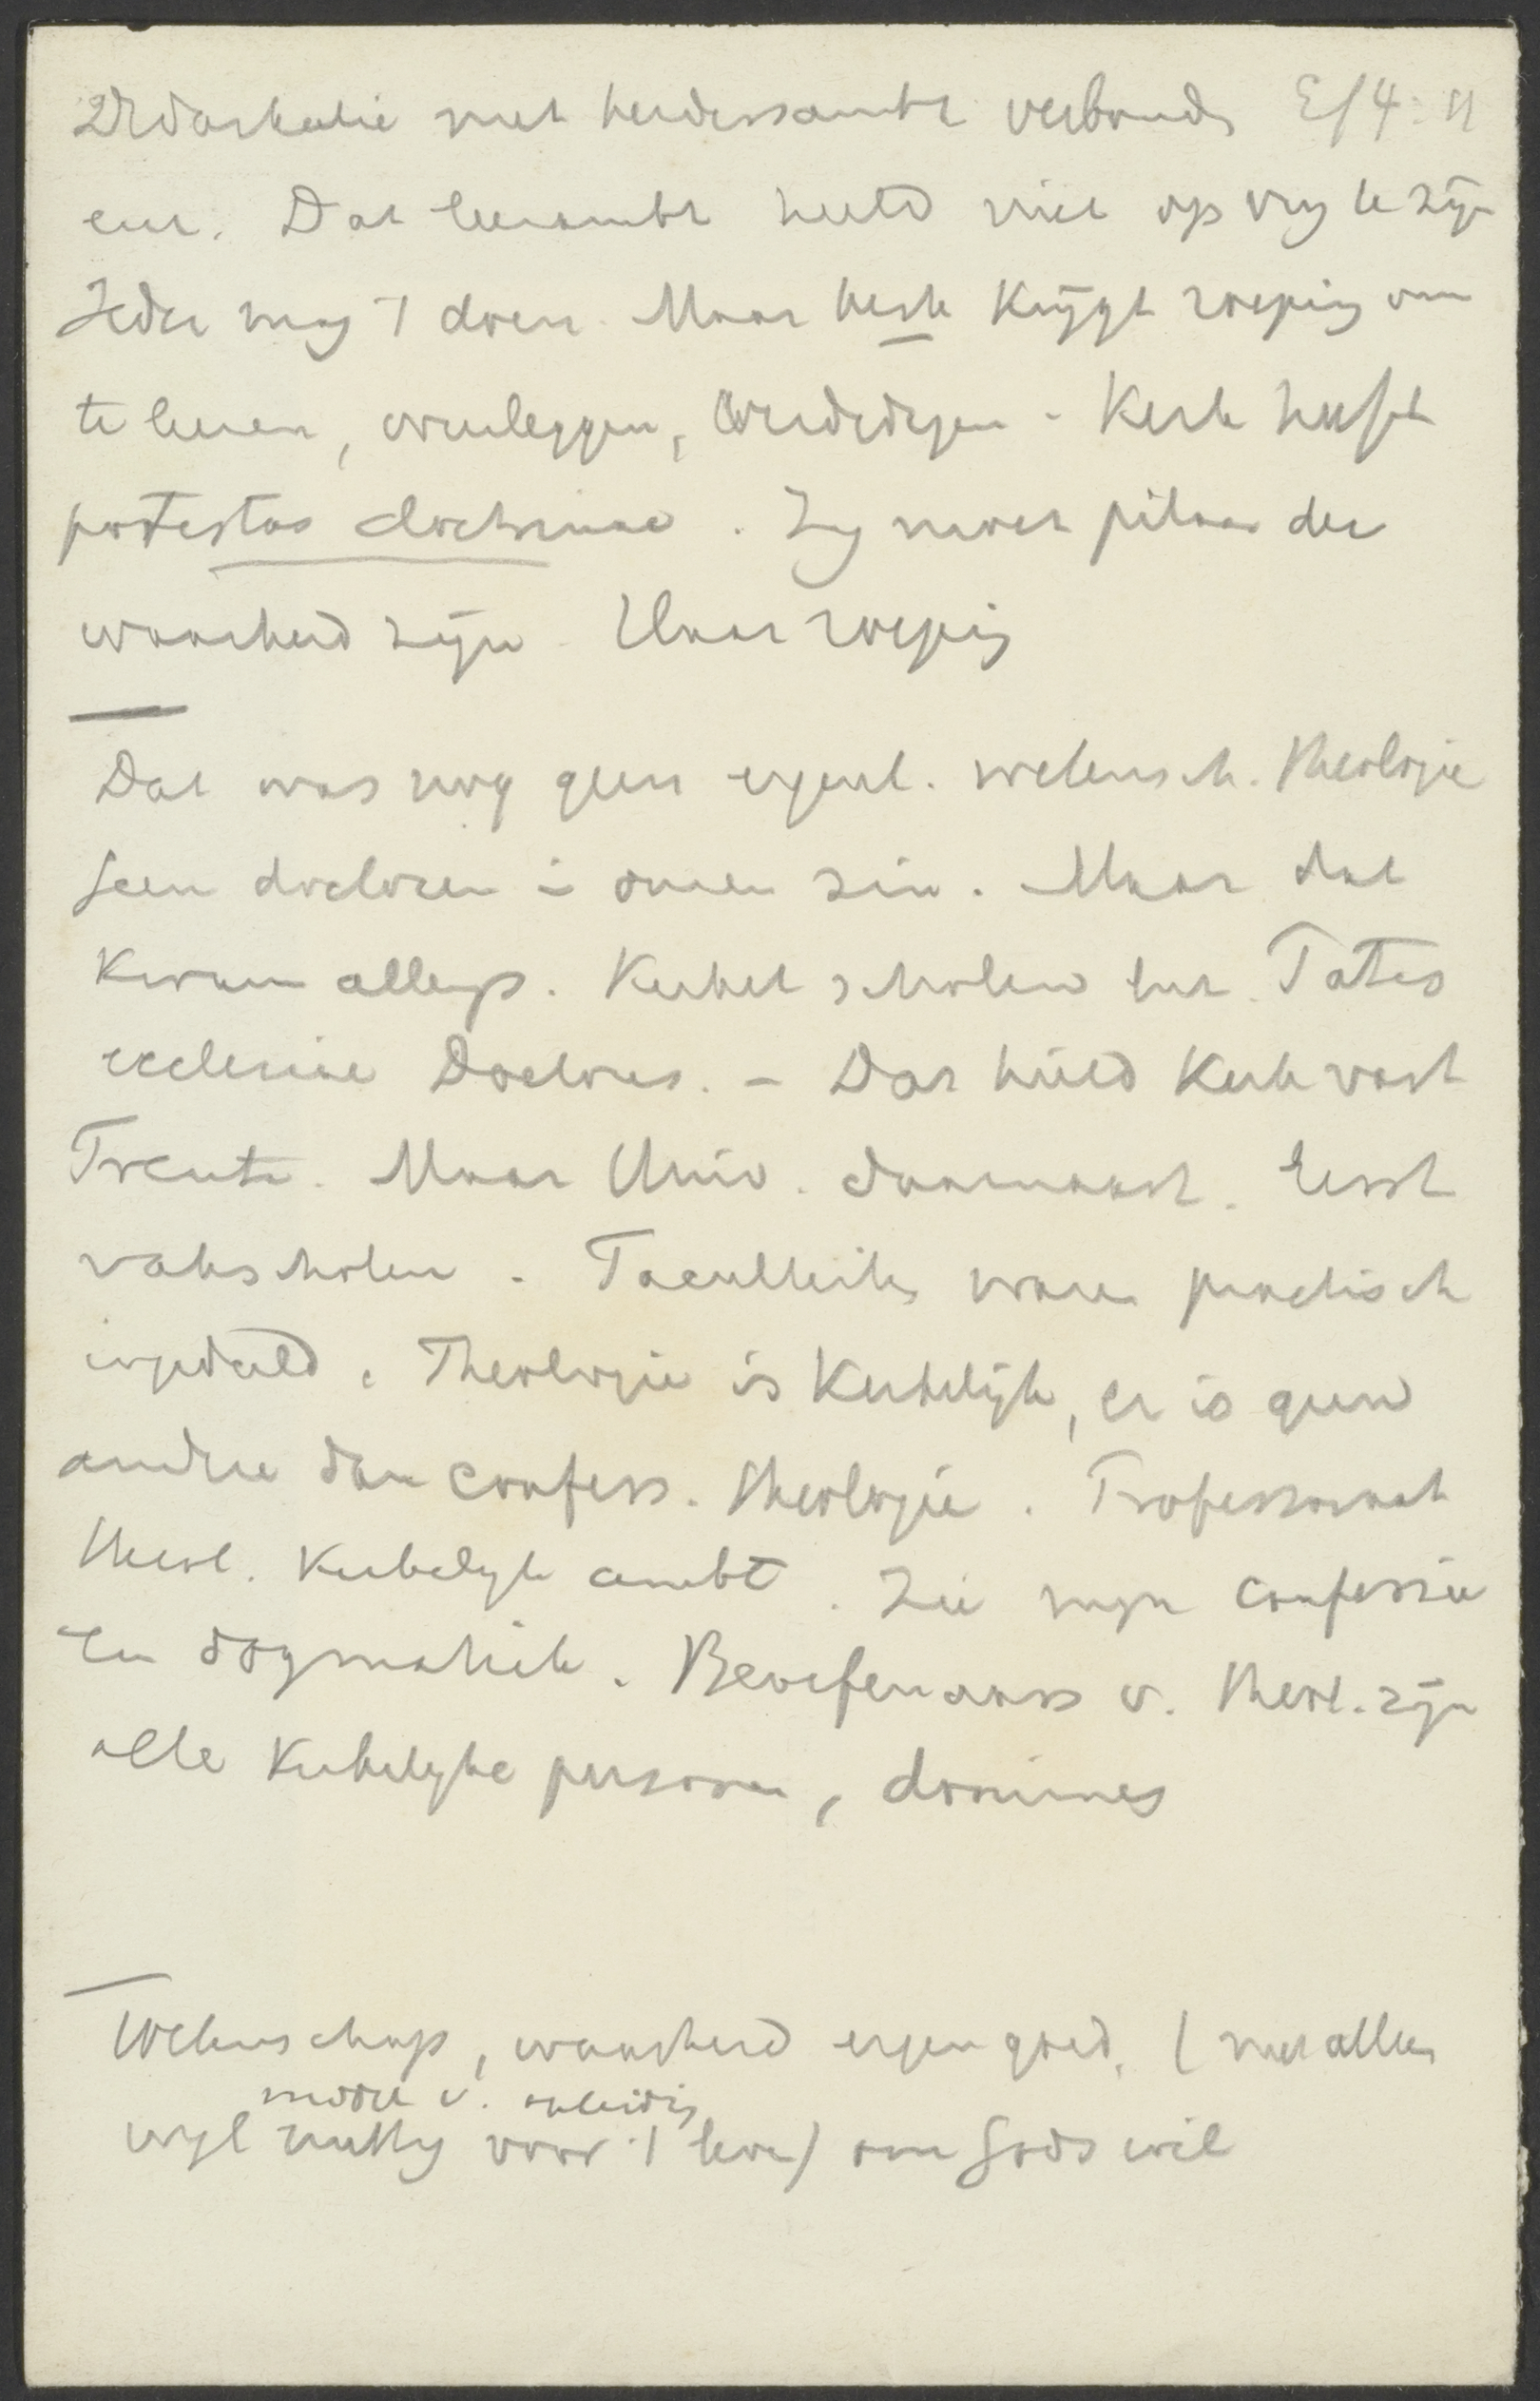 Didaskalie met herdersambt verbonds Ef 4:11
enz. Dat leerambt hield niet op vrij te zijn
Ieder mag 't doen. Maar kerk krijgt roeping om
te leeren, weerleggen, verdedigen - Kerk heeft
potestas doctrinae. Zij moet pilaar der
waarheid zijn. Haar roeping
Dat was nog geen eigenl. wetensch. theologie
Geen doctoren in onzen zin. Maar dat
kwam allengs. Kerkel scholen enz. Patres
ecclesiae Doctores. - Dat hield Kerk vast
Trente. Maar Univ. daarnaast. Eerst
vakscholen. Faculteiten waren practisch
ingedeeld. Theologie is kerkelijk, er is geen
andere dan confess. theologie. Professoraat
theol. kerkelijk ambt. Zie mijn confessie
en dogmatiek. Beoefenaars v. theol. zijn
alle kerkelijke personen, dominees
Wetenschap, waarheid eigen goed. (niet alleen
middel v. opleiding
wijl nuttig voor 't leven) om Gods wil